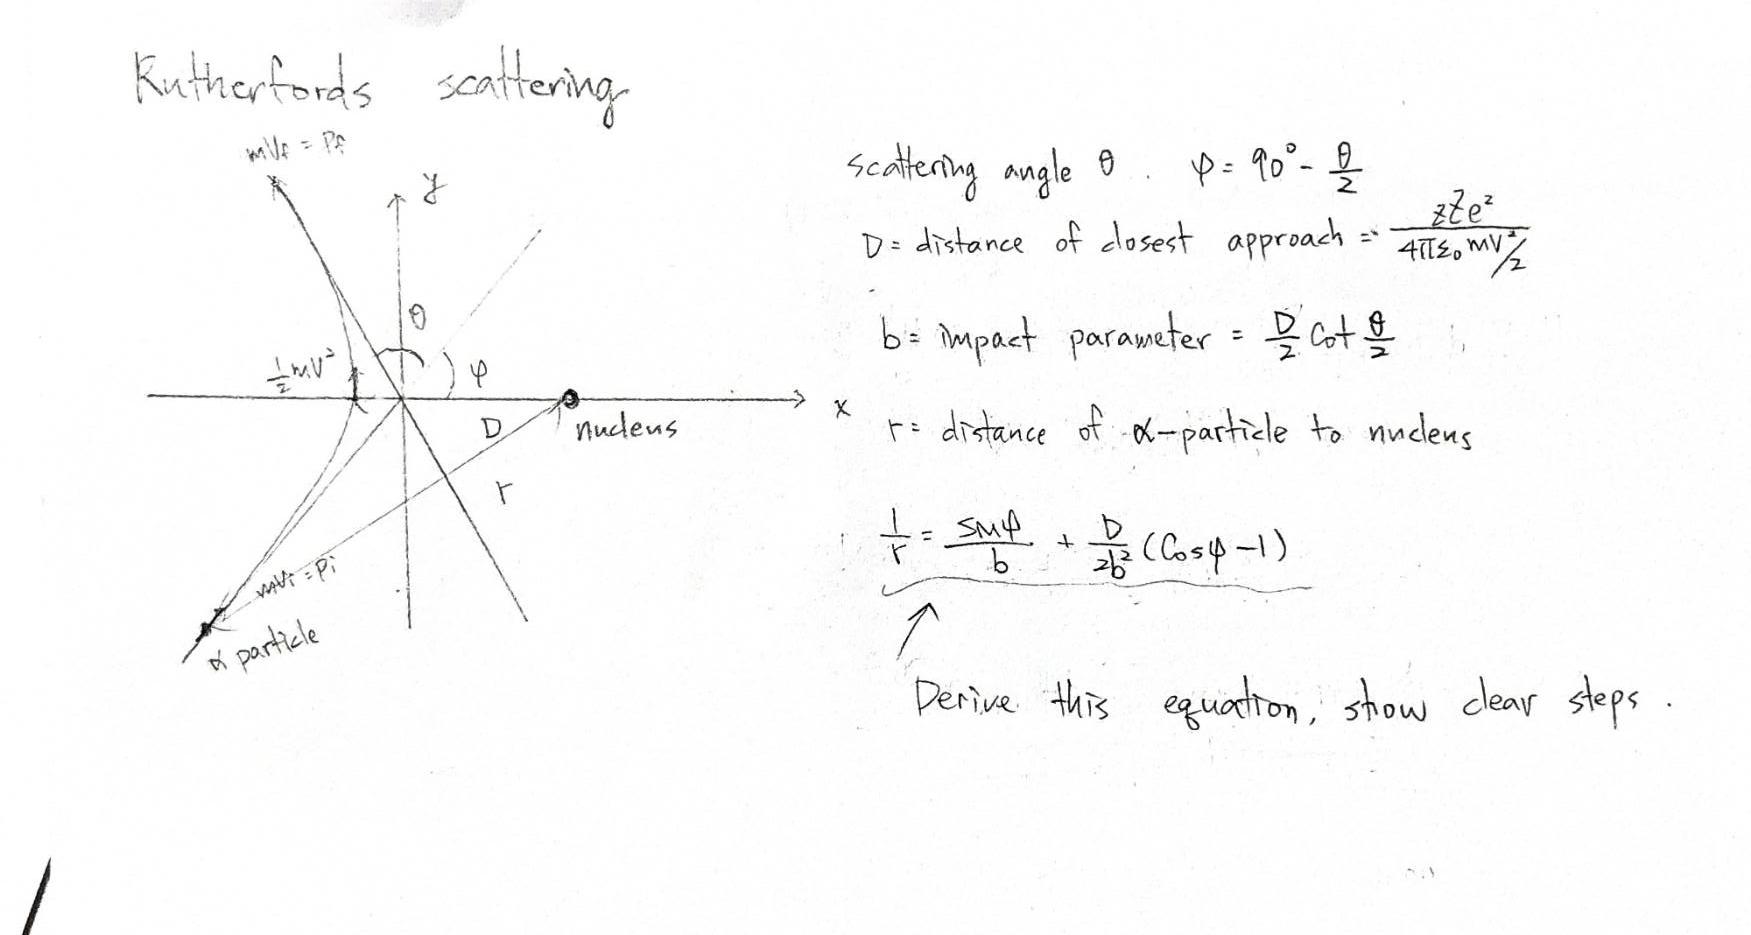 Rutherfords scattering
mVf = Pf
y
θ
½mV²
φ
x
D
nucleus
r
mVi = Pi
α particle
scattering angle θ . φ = 90° - θ/2
D = distance of closest approach = zZe² / 4πε₀ mV²/2
b = impact parameter = D/2 Cot θ/2
r = distance of α-particle to nucleus
1/r = sinφ/b + D/2b² (Cosφ - 1)
Derive this equation, show clear steps.